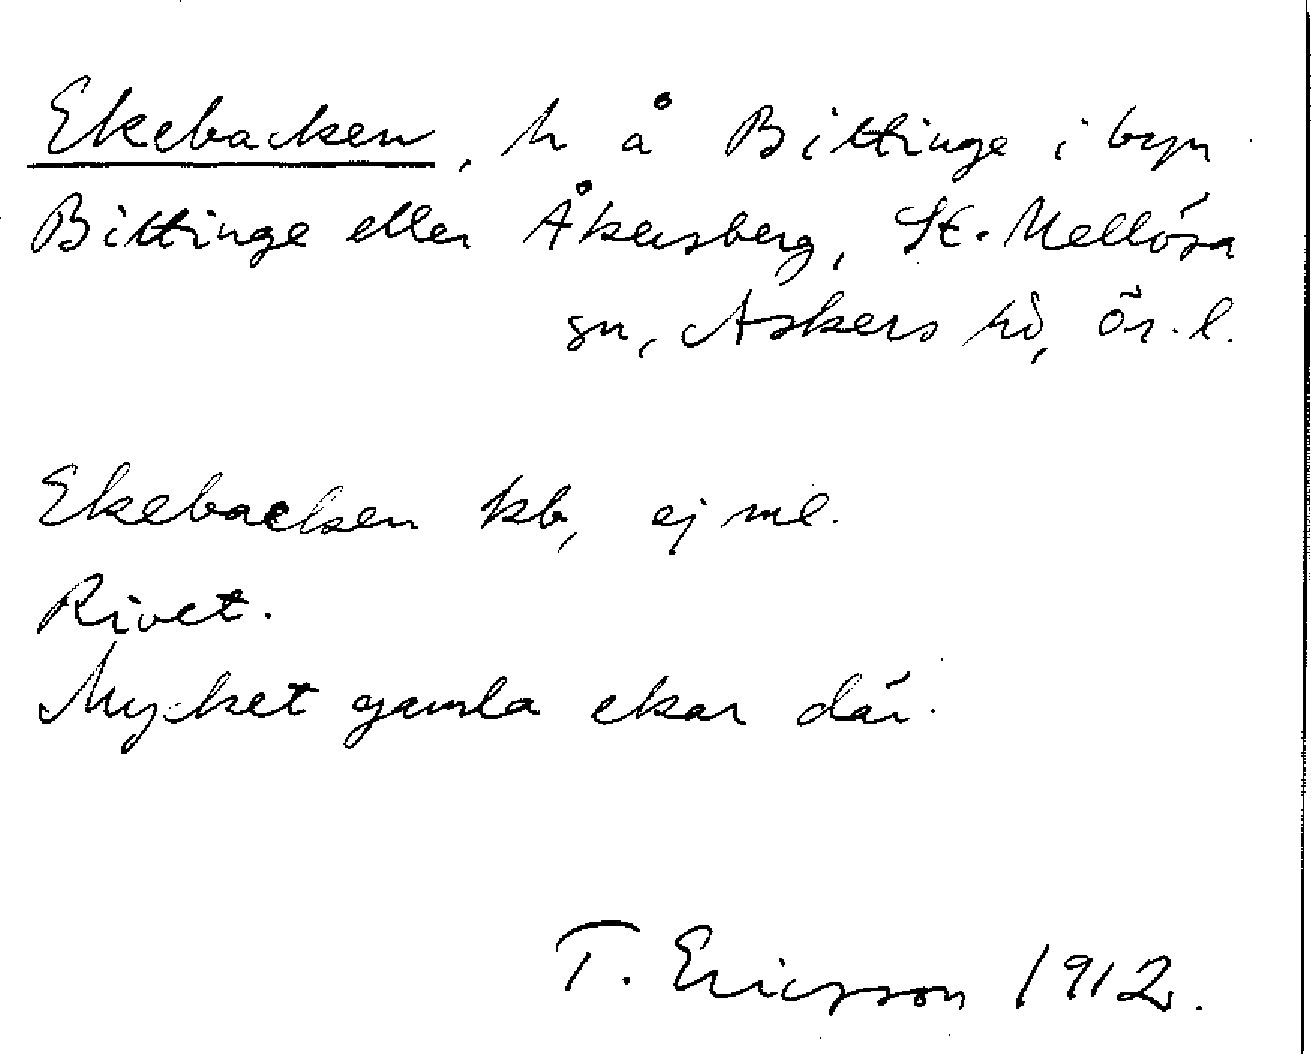 Ekebacken, h å Bittinge i byn
Bittinge eller Åkersberg, St. Mellösa
sn, Askers hd, Ör. l.
Ekebacken kb, ej ml.
Rivet.
Mycket gamla ekar där.
T. Ericsson 1912.